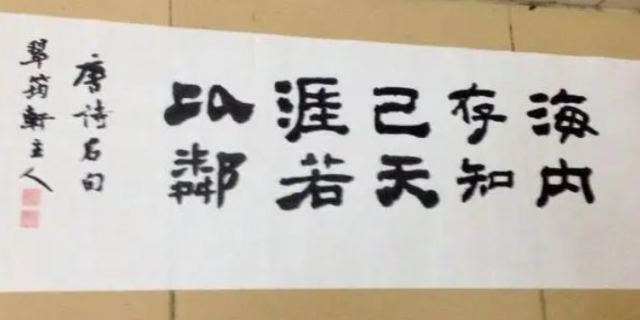 海内
存知
己天
涯若
比鄰
唐诗名句
翠筠軒主人